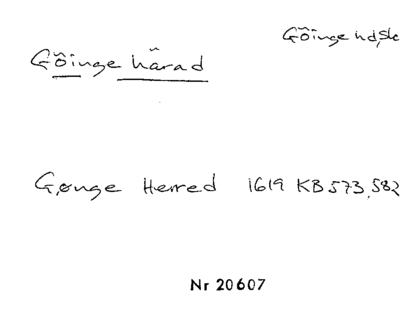 Göinge hd, Sk
Göinge härad
Gønge Herred 1619 KB 573, 582
Nr 20607